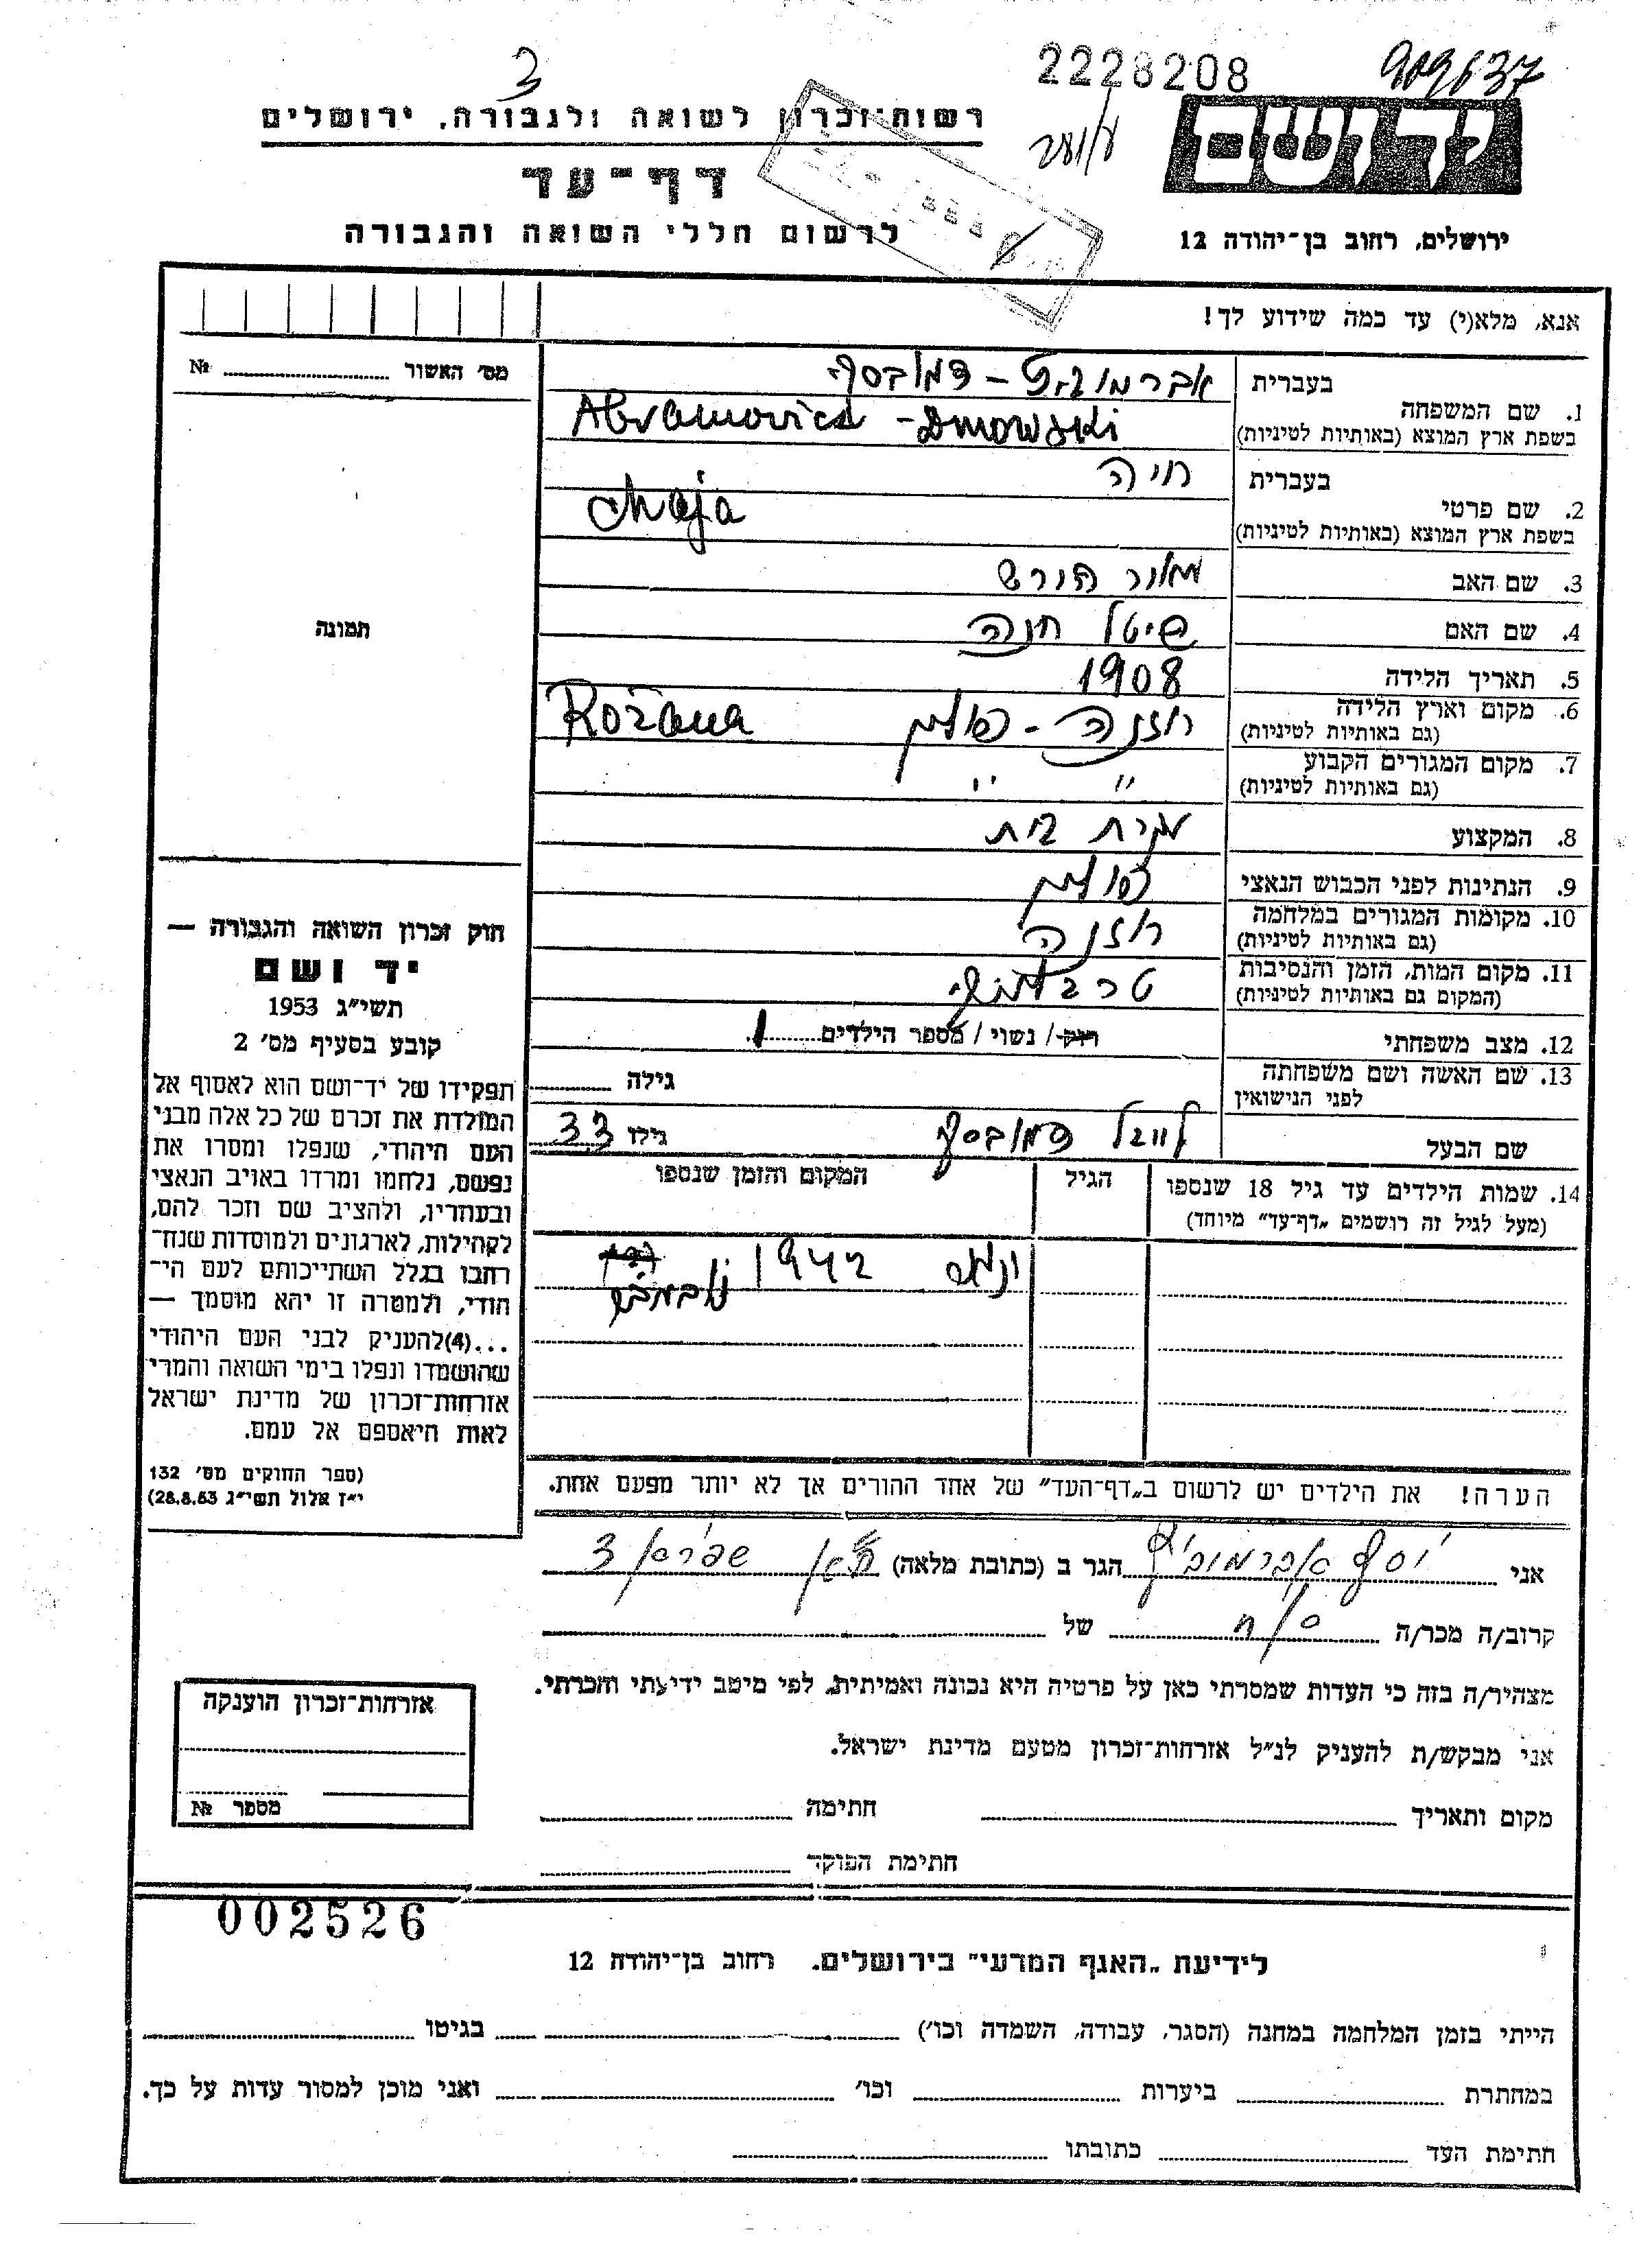 3
2228208
909637
רשות־זכרון לשואה ולגבורה, ירושלים
יד ושם
דף־עד
לרשום חללי השואה והגבורה
ירושלים, רחוב בן־יהודה 12
אנא, מלא(י) עד כמה שידוע לך!
מס׳ האשור № 
1. שם המשפחה
בעברית אברמוביץ - דמובסקי
בשפת ארץ המוצא (באותיות לטיניות) Abramovicz - Dmowski
2. שם פרטי
בעברית חיה
בשפת ארץ המוצא (באותיות לטיניות) Chaja
3. שם האב מאור הירש
4. שם האם פיטל חנה
תמונה
5. תאריך הלידה 1908
6. מקום וארץ הלידה רוזנה - פולין Rożana
(גם באותיות לטיניות)
7. מקום המגורים הקבוע " "
(גם באותיות לטיניות)
8. המקצוע עקרת בית
9. הנתינות לפני הכבוש הנאצי פולין
10. מקומות המגורים במלחמה רוזנה
(גם באותיות לטיניות)
11. מקום המות, הזמן והנסיבות טרבלינקי
(המקום גם באותיות לטיניות)
12. מצב משפחתי רוק / נשוי / מספר הילדים 1
13. שם האשה ושם משפחתה גילה
לפני הנישואין
שם הבעל לייבל דמובסקי גילו 33
14. שמות הילדים עד גיל 18 שנספו הגיל המקום והזמן שנספו
(מעל לגיל זה רושמים „דף־עד" מיוחד)
1942
הערה! את הילדים יש לרשום ב„דף־העד" של אחד ההורים אך לא יותר מפעם אחת.
חוק זכרון השואה והגבורה —
יד ושם
תשי״ג 1953
קובע בסעיף מס׳ 2
תפקידו של יד־ושם הוא לאסוף אל
המולדת את זכרם של כל אלה מבני
העם היהודי, שנפלו ומסרו את
נפשם, נלחמו ומרדו באויב הנאצי
ובעוזריו, ולהציב שם וזכר להם,
לקהילות, לארגונים ולמוסדות שנח־
רבו בגלל השתייכותם לעם הי־
הודי, ולמטרה זו יהא מוסמך —
...(4)להעניק לבני העם היהודי
שהושמדו ונפלו בימי השואה והמרי
אזרחות־זכרון של מדינת ישראל
לאות היאספם אל עמם.
(ספר החוקים מס׳ 132
י״ז אלול תשי״ג 28.8.53)
אני יוסף אברמוביץ הגר ב (כתובת מלאה) ת״א שפרא 3
קרוב/ה מכר/ה אח של
מצהיר/ה בזה כי העדות שמסרתי כאן על פרטיה היא נכונה ואמיתית, לפי מיטב ידיעתי והכרתי.
אני מבקש/ת להעניק לנ״ל אזרחות־זכרון מטעם מדינת ישראל.
מקום ותאריך חתימה
חתימת הפוקד
אזרחות־זכרון הוענקה
מספר №
002526
לידיעת „האגף המדעי" בירושלים. רחוב בן־יהודה 12
הייתי בזמן המלחמה במחנה (הסגר, עבודה, השמדה וכו׳) בגיטו
במחתרת ביערות וכו׳ ואני מוכן למסור עדות על כך.
חתימת העד כתובתו